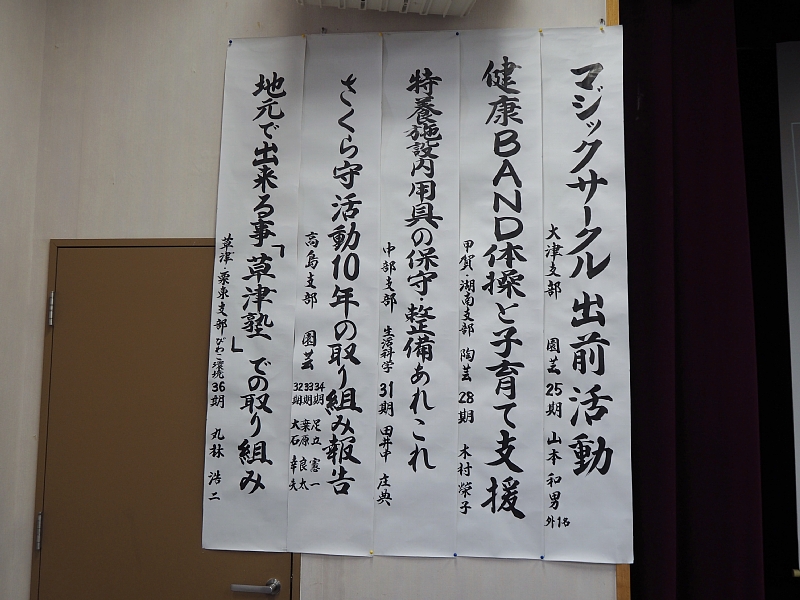 マジックサークル出前活動
大津支部 園芸25期 山本和男 外1名
健康BAND体操と子育て支援
甲賀・湖南支部 陶芸28期 木村榮子
特養施設内用具の保守・整備あれこれ
中部支部 生活科学31期 田井中庄典
さくら守活動10年の取り組み報告
高島支部 園芸
34期 足立憲一
33期 葉原良太
32期 大石幸夫
地元で出来る事「草津塾」での取り組み
草津・栗東支部 びわこ環境36期 丸林浩二